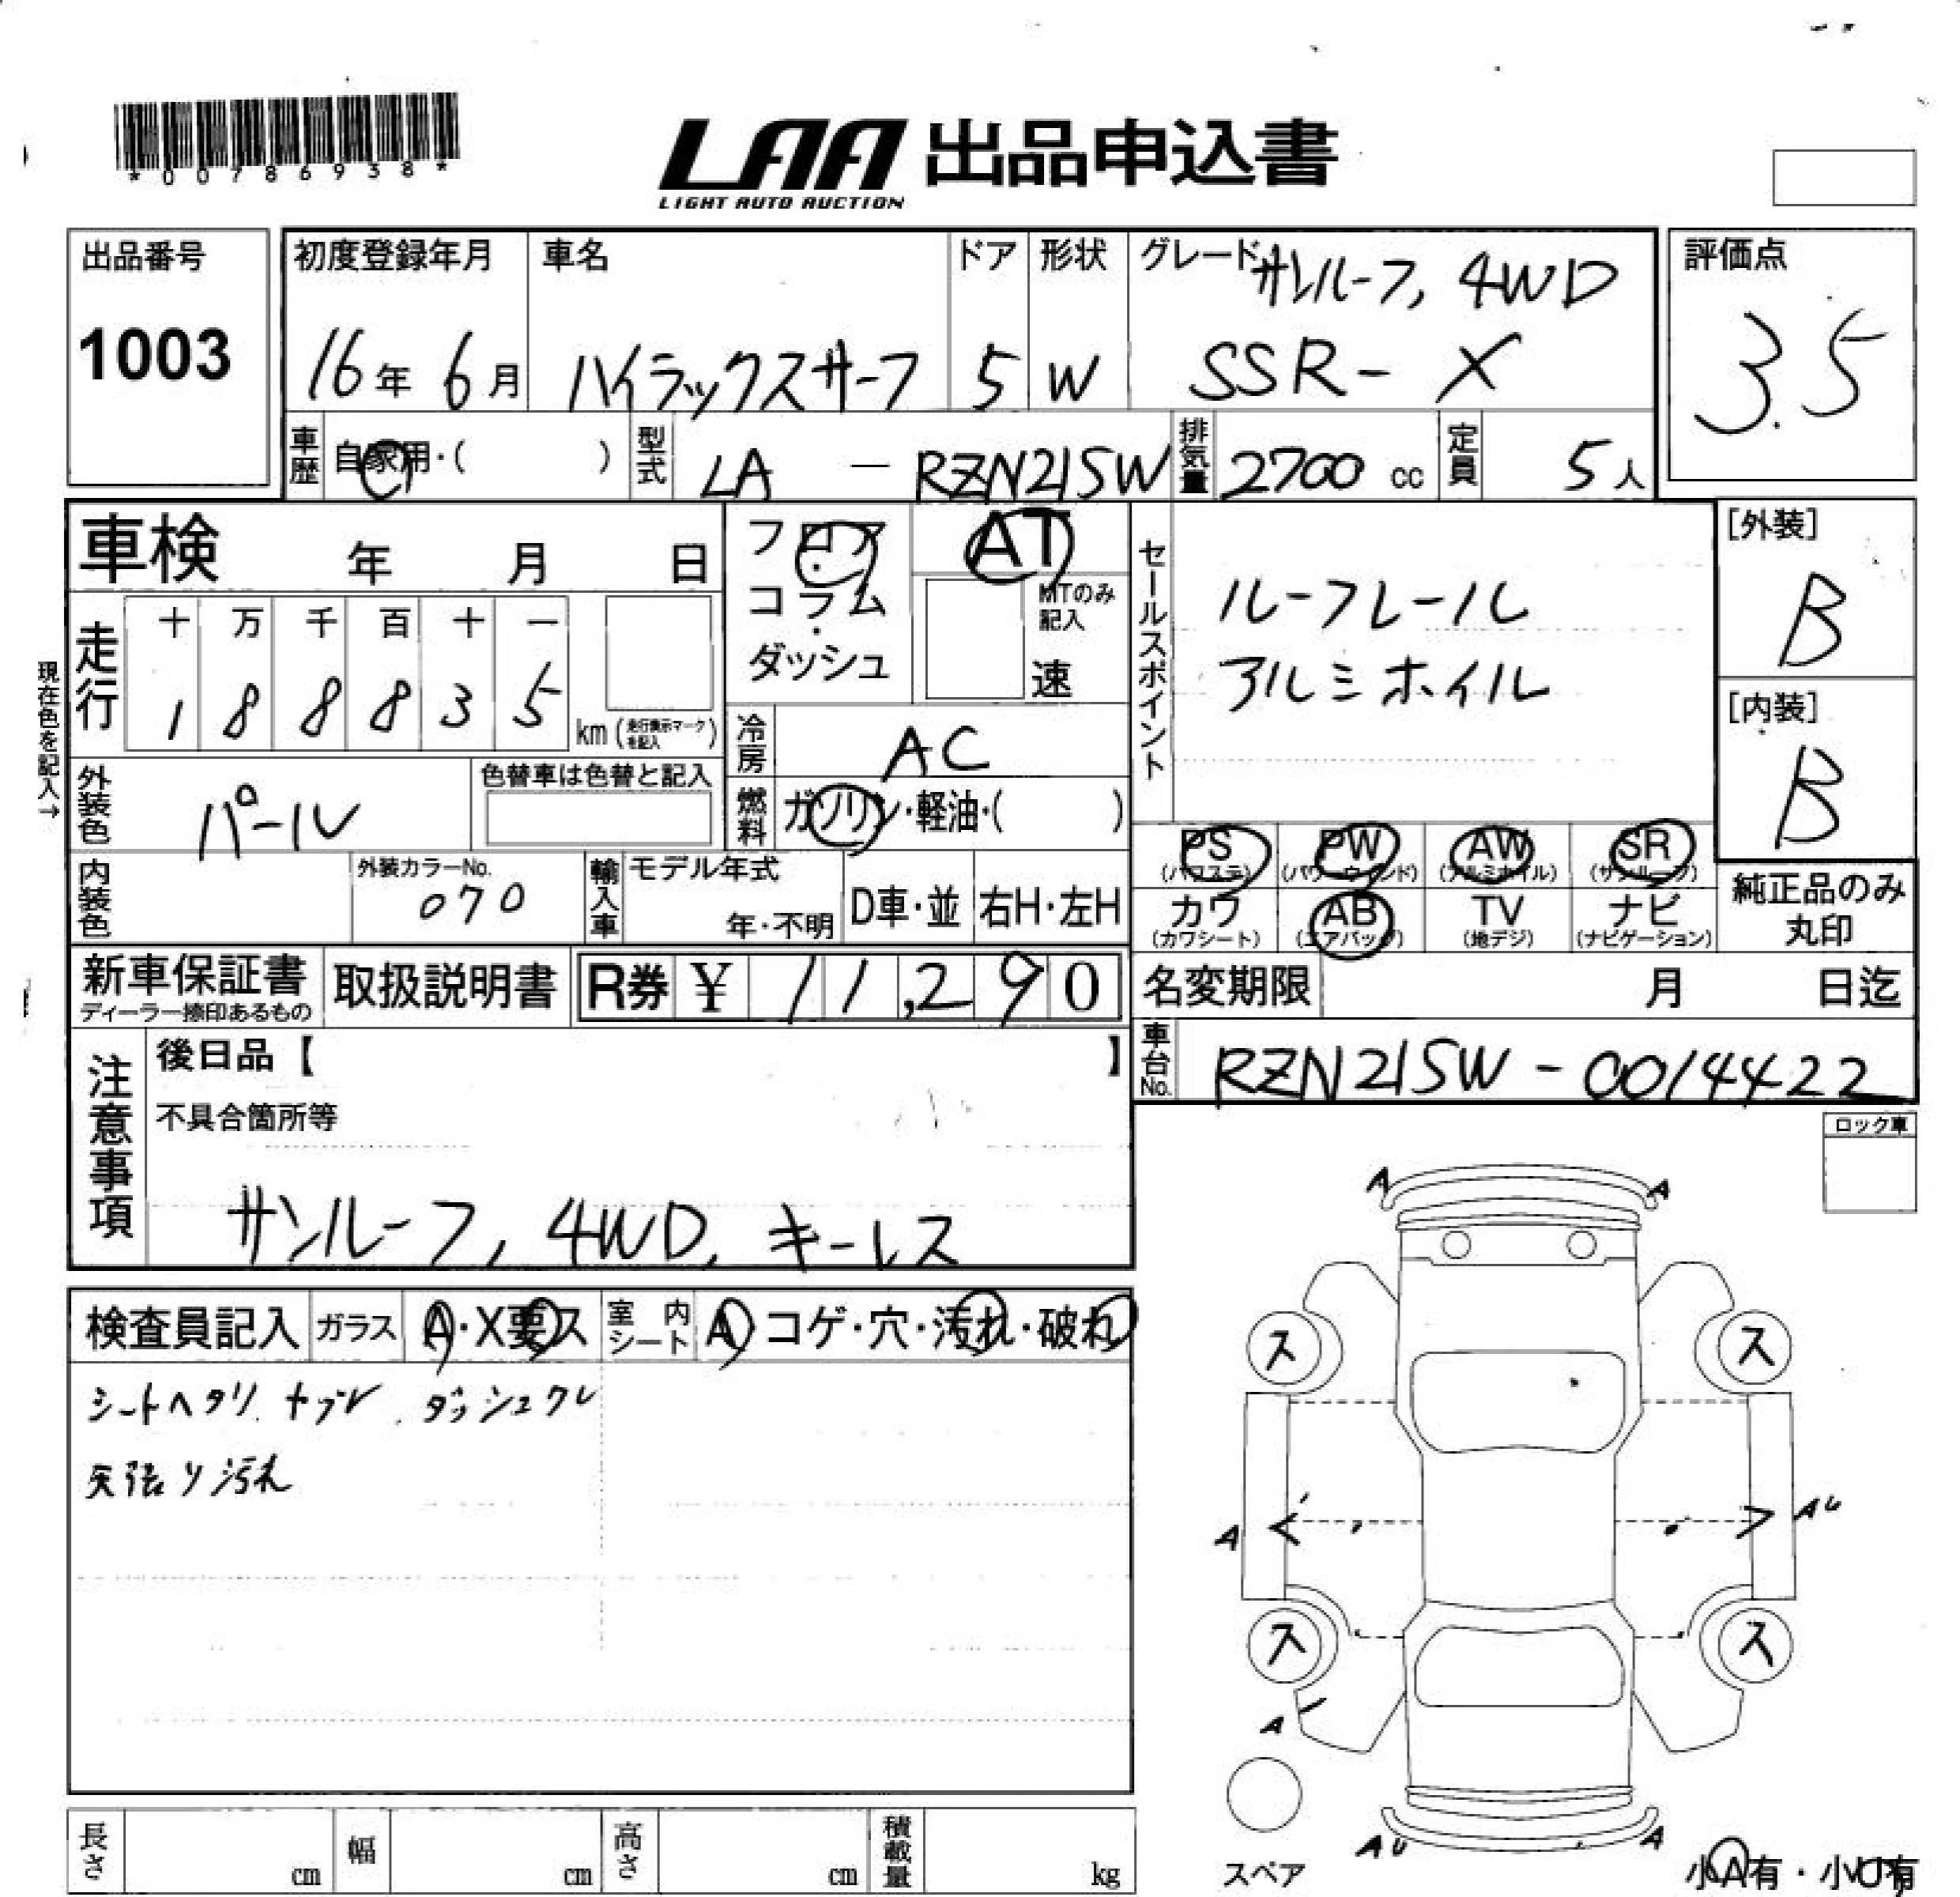 *00786938*
LAA 出品申込書
LIGHT AUTO AUCTION
出品番号
1003
初度登録年月
16年 6月
車名
ハイラックスサーフ
ドア
5
形状
W
グレード
サンルーフ, 4WD
SSR- X
評価点
3.5
車歴
自家用・( )
型式
LA - RZN215W
排気量
2700 cc
定員
5人
車検 年 月 日
フロア・コラム・ダッシュ
AT
MTのみ記入
速
セールスポイント
ルーフレール
アルミホイル
[外装]
B
[内装]
B
現在色を記入→
走行
十 万 千 百 十 一
1 8 8 8 3 5
km (走行表示マークを記入)
冷房
AC
外装色
パール
色替車は色替と記入
燃料
ガソリン・軽油・( )
PS (パワステ)
PW (パワーウインド)
AW (アルミホイル)
SR (サンルーフ)
カワ (カワシート)
AB (エアバッグ)
TV (地デジ)
ナビ (ナビゲーション)
純正品のみ丸印
内装色
外装カラーNo.
070
輸入車
モデル年式
年・不明
D車・並
右H・左H
新車保証書
ディーラー捺印あるもの
取扱説明書
R券 ¥ 11,290
名変期限 月 日迄
車台No.
RZN215W - 0014422
注意事項
後日品【 】
不具合箇所等
サンルーフ, 4WD, キーレス
ロック車
検査員記入
ガラス
A・X要ス
室内シート
A コゲ・穴・汚れ・破れ
シートヘタリ. ヤブレ. ダッシュワレ
天張り汚れ
A A
ス ス
A AU
ス ス
A
スペア
AU A
小A有・小U有
長さ cm
幅 cm
高さ cm
積載量 kg